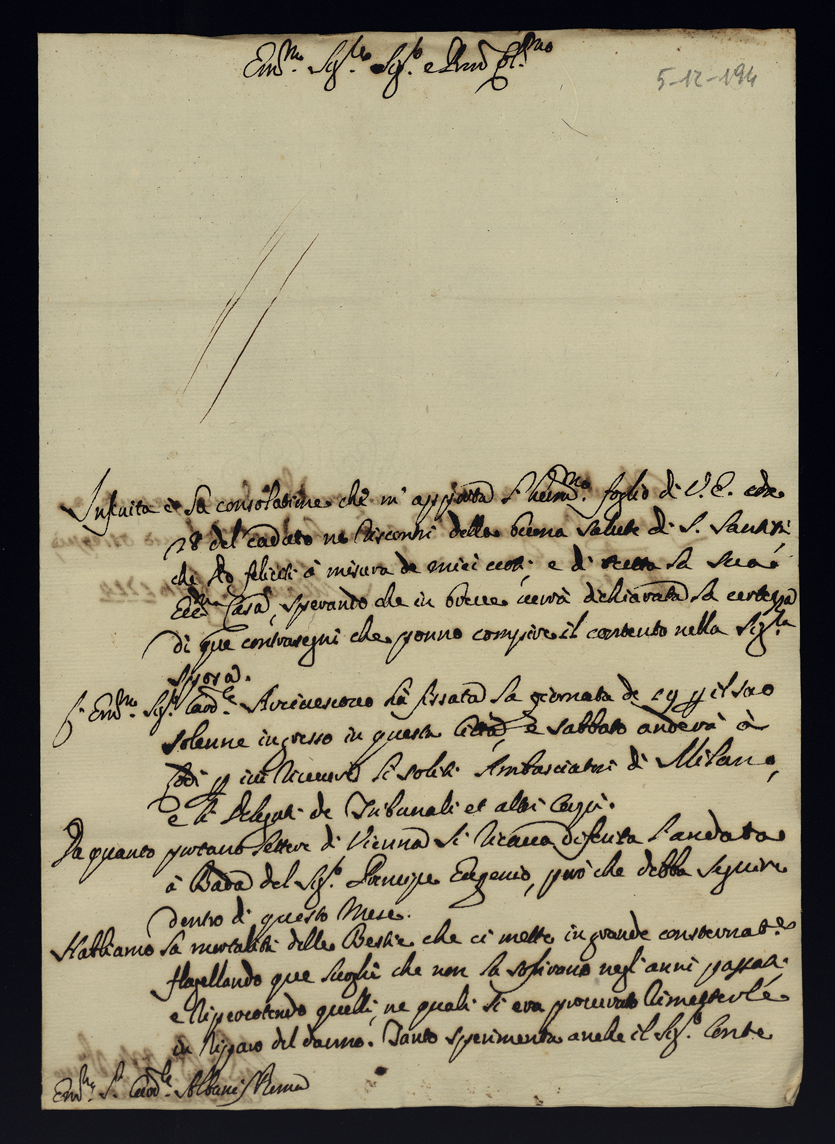 Em.mo Sig.re Sig.r e Prñ Col.mo
5-12-194
Infinita è la consolatione che m'apporta l'hum.mo foglio di V. E. cdx
28 del caduto ne riscontri della buona salute di S. Santità
che Dio feliciti à misura de miei voti e di tutta la sua
Ecc.ma Casa, sperando che in breve verrà dichiarata la certezza
di que contrasegni che ponno compire il contento nella Sig.ra
sposa.
Em.mo Sig.r Card.le Arcivescovo hà fissata la giornata de 19 p il suo
solenne ingresso in questa Città, e sabbato anderà à
Lodi p ivi ricevere li soliti Ambasciatori di Milano,
e li Delegati de Tribunali et altri Corpi.
Da quanto portano lettere di Vienna si ricava differita l'andata
à Bada del Sig.r Principe Eugenio, però che debba seguire
dentro di questo Mese.
Habbiamo la mortalità delle Bestie che ci mette in grande consternat.e
flagellando que luoghi che non la soffrirono negl'anni passati
e ripercotendo quelli, ne quali si era procurato rimetterle
in riparo del danno. Tanto sperimenta anche il Sig.r Conte
Em.mo S.r Card.le Albani Roma